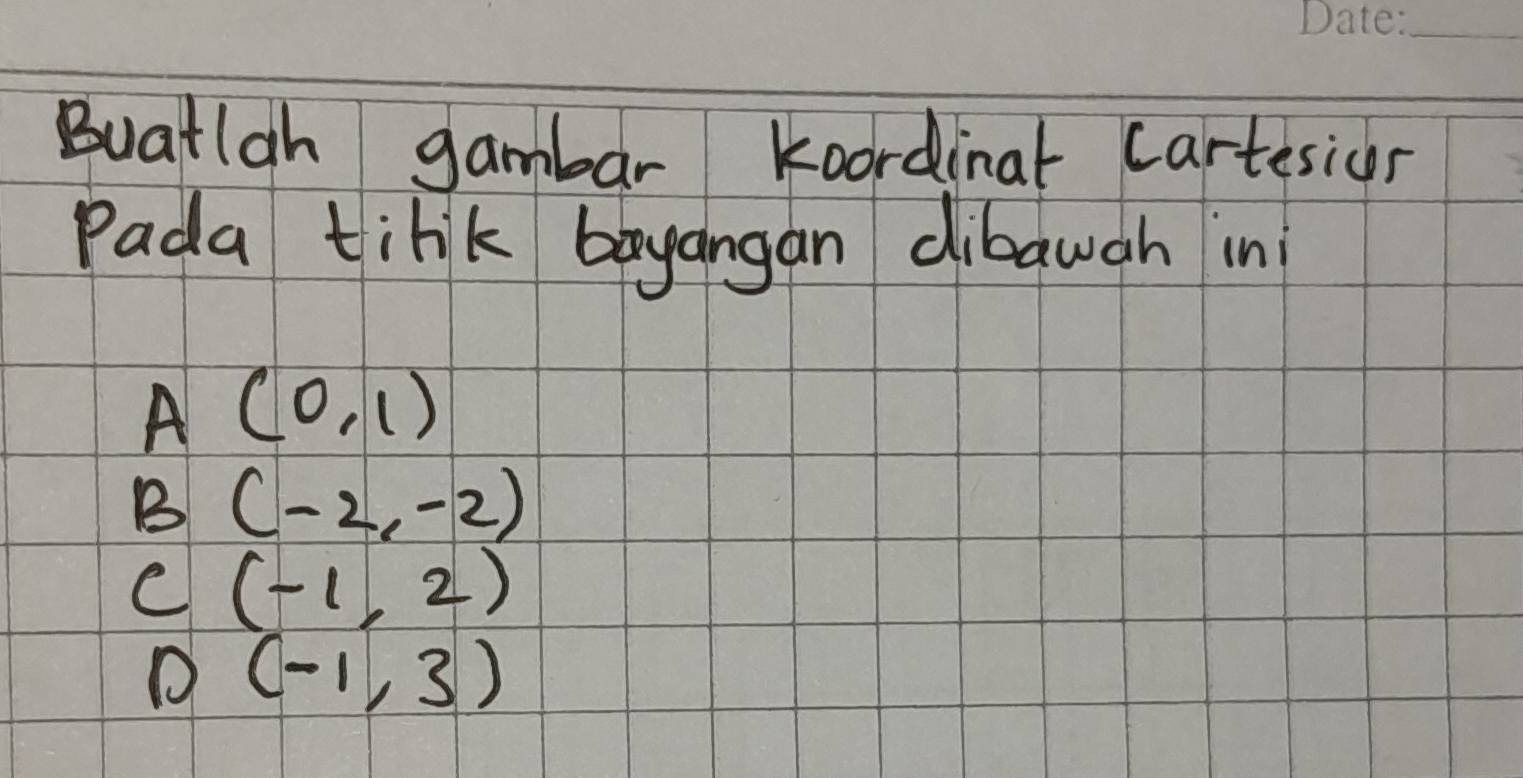 Date:
Buatlah gambar koordinat Cartesius
Pada titik bayangan dibawah ini
A (0,1)
B (-2,-2)
C (-1, 2)
D (-1, 3)